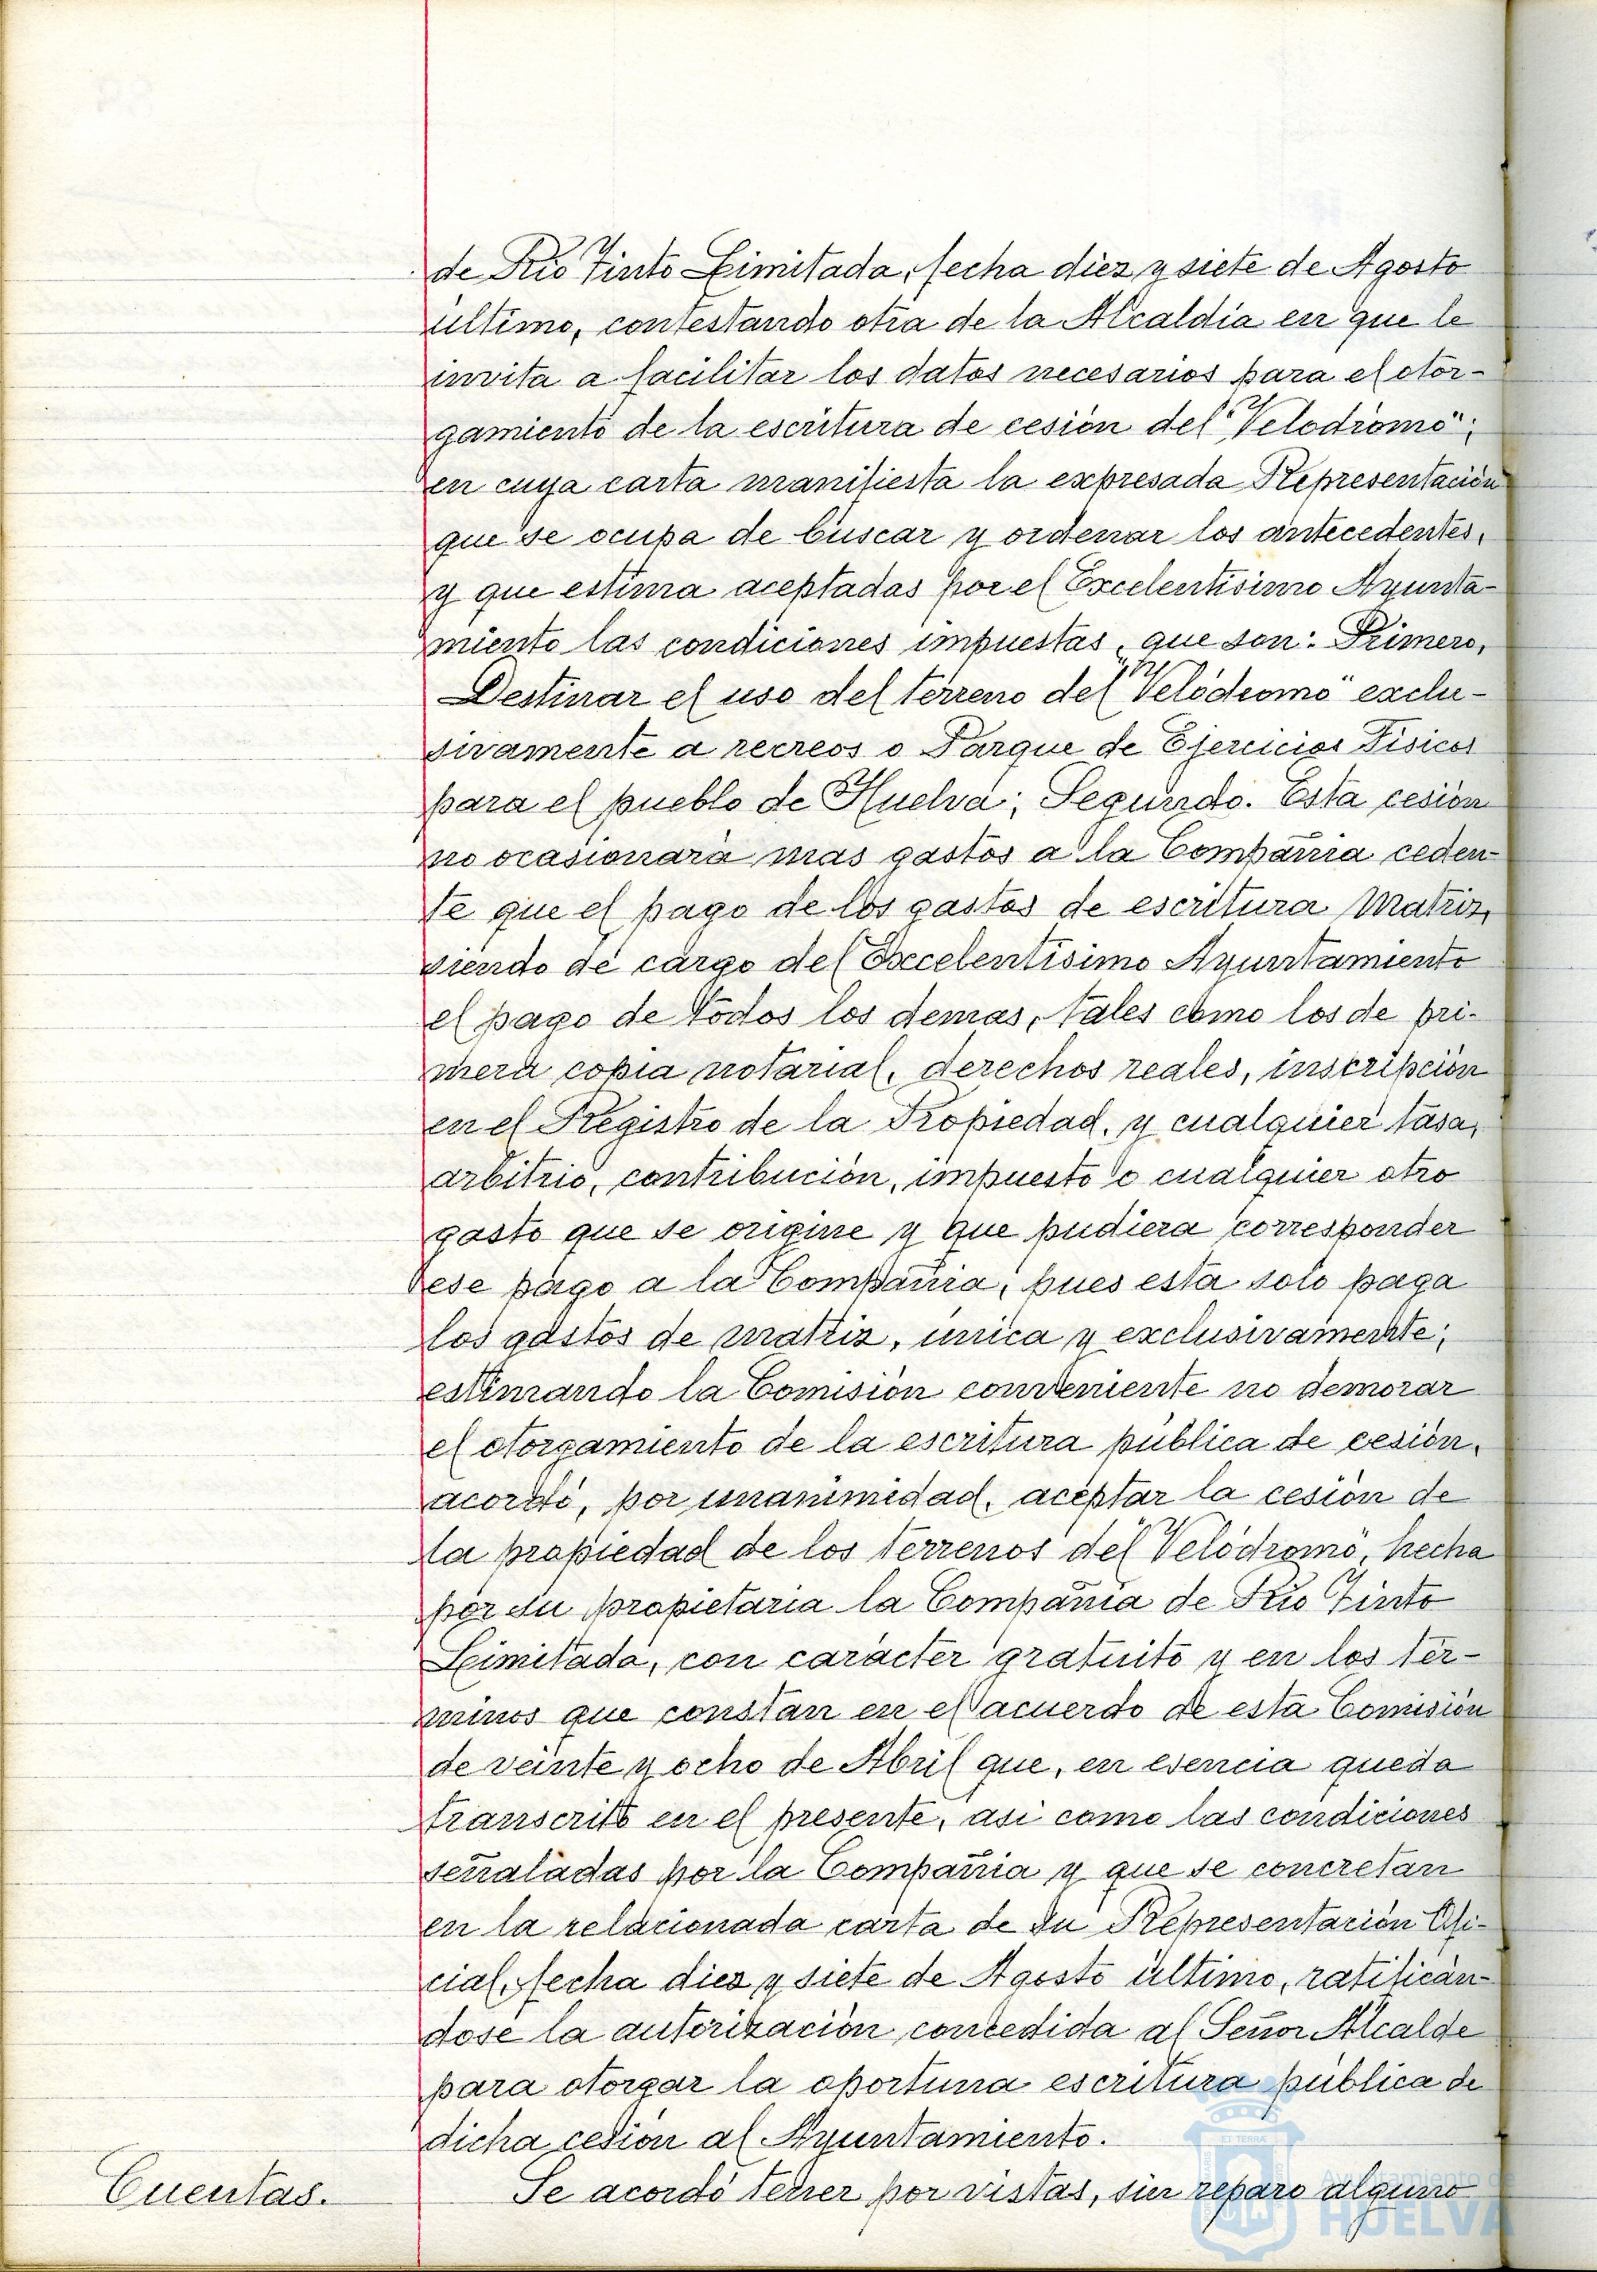 de Rio Tinto Limitada, fecha diez y siete de Agosto
último, contestando otra de la Alcaldía en que le
invita a facilitar los datos necesarios para el otor-
gamiento de la escritura de cesión del "Velódromo";
en cuya carta manifiesta la expresada Representación
que se ocupa de buscar y ordenar los antecedentes,
y que estima aceptadas por el Excelentísimo Ayunta-
miento las condiciones impuestas, que son: Primero,
Destinar el uso del terreno del "Velódromo" exclu-
sivamente a recreos o Parque de Ejercicios Físicos
para el pueblo de Huelva; Segundo. Esta cesión
no ocasionará mas gastos a la Compañia ceden-
te que el pago de los gastos de escritura Matriz,
siendo de cargo del Excelentísimo Ayuntamiento
el pago de todos los demas, tales como los de pri-
mera copia notarial, derechos reales, inscripción
en el Registro de la Propiedad, y cualquier tasa,
arbitrio, contribución, impuesto o cualquier otro
gasto que se origine y que pudiera corresponder
ese pago a la Compañia, pues esta solo paga
los gastos de matriz, única y exclusivamente;
estimando la Comisión conveniente no demorar
el otorgamiento de la escritura pública de cesión,
acordó, por unanimidad, aceptar la cesión de
la propiedad de los terrenos del "Velódromo", hecha
por su propietaria la Compañia de Rio Tinto
Limitada, con carácter gratuito y en los tér-
minos que constan en el acuerdo de esta Comisión
de veinte y ocho de Abril que, en esencia queda
transcrito en el presente, asi como las condiciones
señaladas por la Compañia y que se concretan
en la relacionada carta de su Representación Ofi-
cial, fecha diez y siete de Agosto último, ratificán-
dose la autorización concedida al Señor Alcalde
para otorgar la oportuna escritura pública de
dicha cesión al Ayuntamiento.
Cuentas. Se acordó tener por vistas, sin reparo alguno
Ayuntamiento de
HUELVA